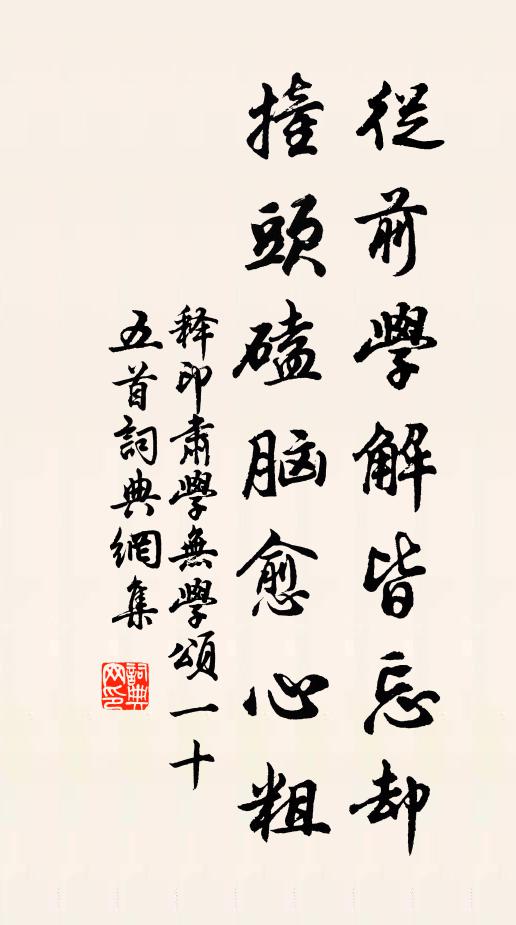 從前學解皆忘却
撞頭磕脑愈心粗
释印肅學無學頌一十
五首詞典網集
詞典
网印